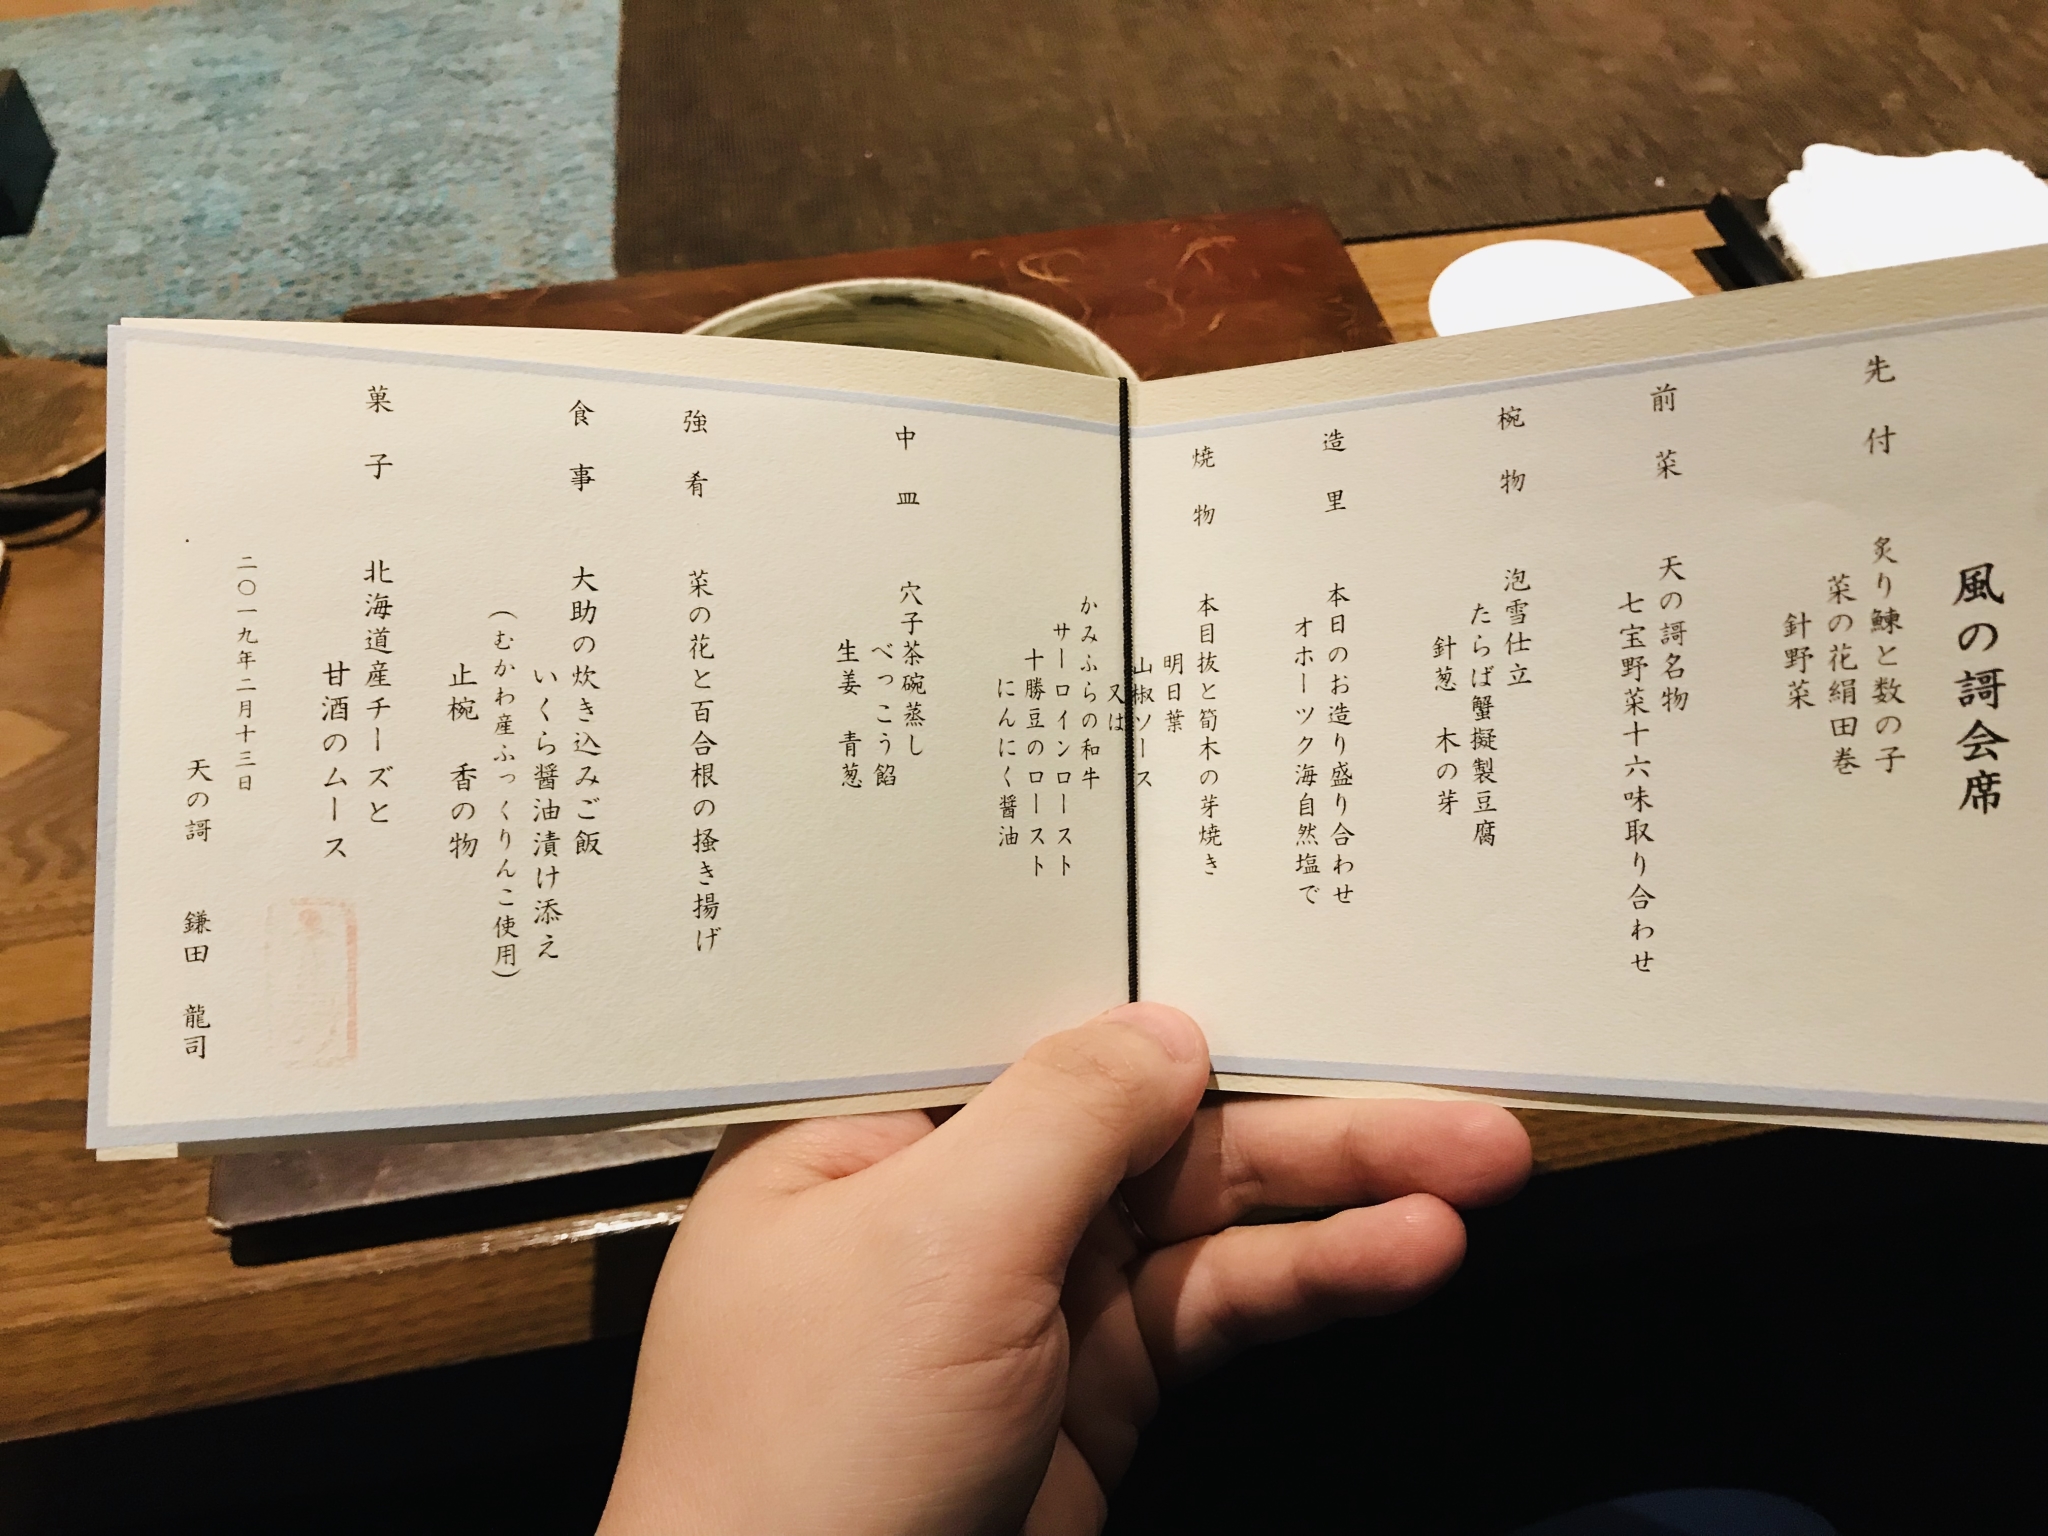 風の謌会席
先付 炙り鰊と数の子
菜の花絹田巻
針野菜
前菜 天の謌名物
七宝野菜十六味取り合わせ
椀物 泡雪仕立
たらば蟹擬製豆腐
針葱 木の芽
造里 本日のお造り盛り合わせ
オホーツク海自然塩で
焼物 本目抜と筍木の芽焼き
明日葉
山椒ソース
又は
かみふらの和牛
サーロインロースト
十勝豆のロースト
にんにく醤油
中皿 穴子茶碗蒸し
べっこう餡
生姜 青葱
強肴 菜の花と百合根の掻き揚げ
食事 大助の炊き込みご飯
いくら醤油漬け添え
（むかわ産ふっくりんこ使用）
止椀 香の物
菓子 北海道産チーズと
甘酒のムース
二〇一九年二月十三日
天の謌 鎌田 龍司